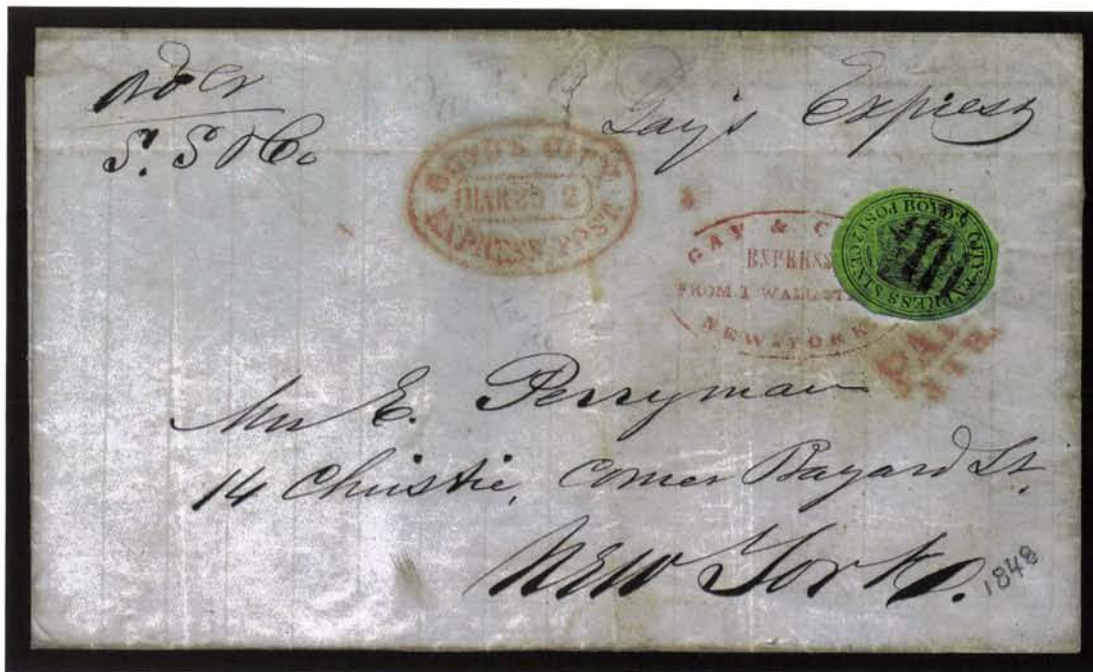 S. S & Co
Gay's Express
BOYD'S CITY
MAR 25 2
EXPRESS POST
GAY & C
EXPRESS
FROM 1 WALL ST
NEW-YORK
BOYD'S CITY EXPRESS POST 2 CENTS
PAI
Mrs E. Perryman
14 Christie, Corner Bayard St.
New York.
1848